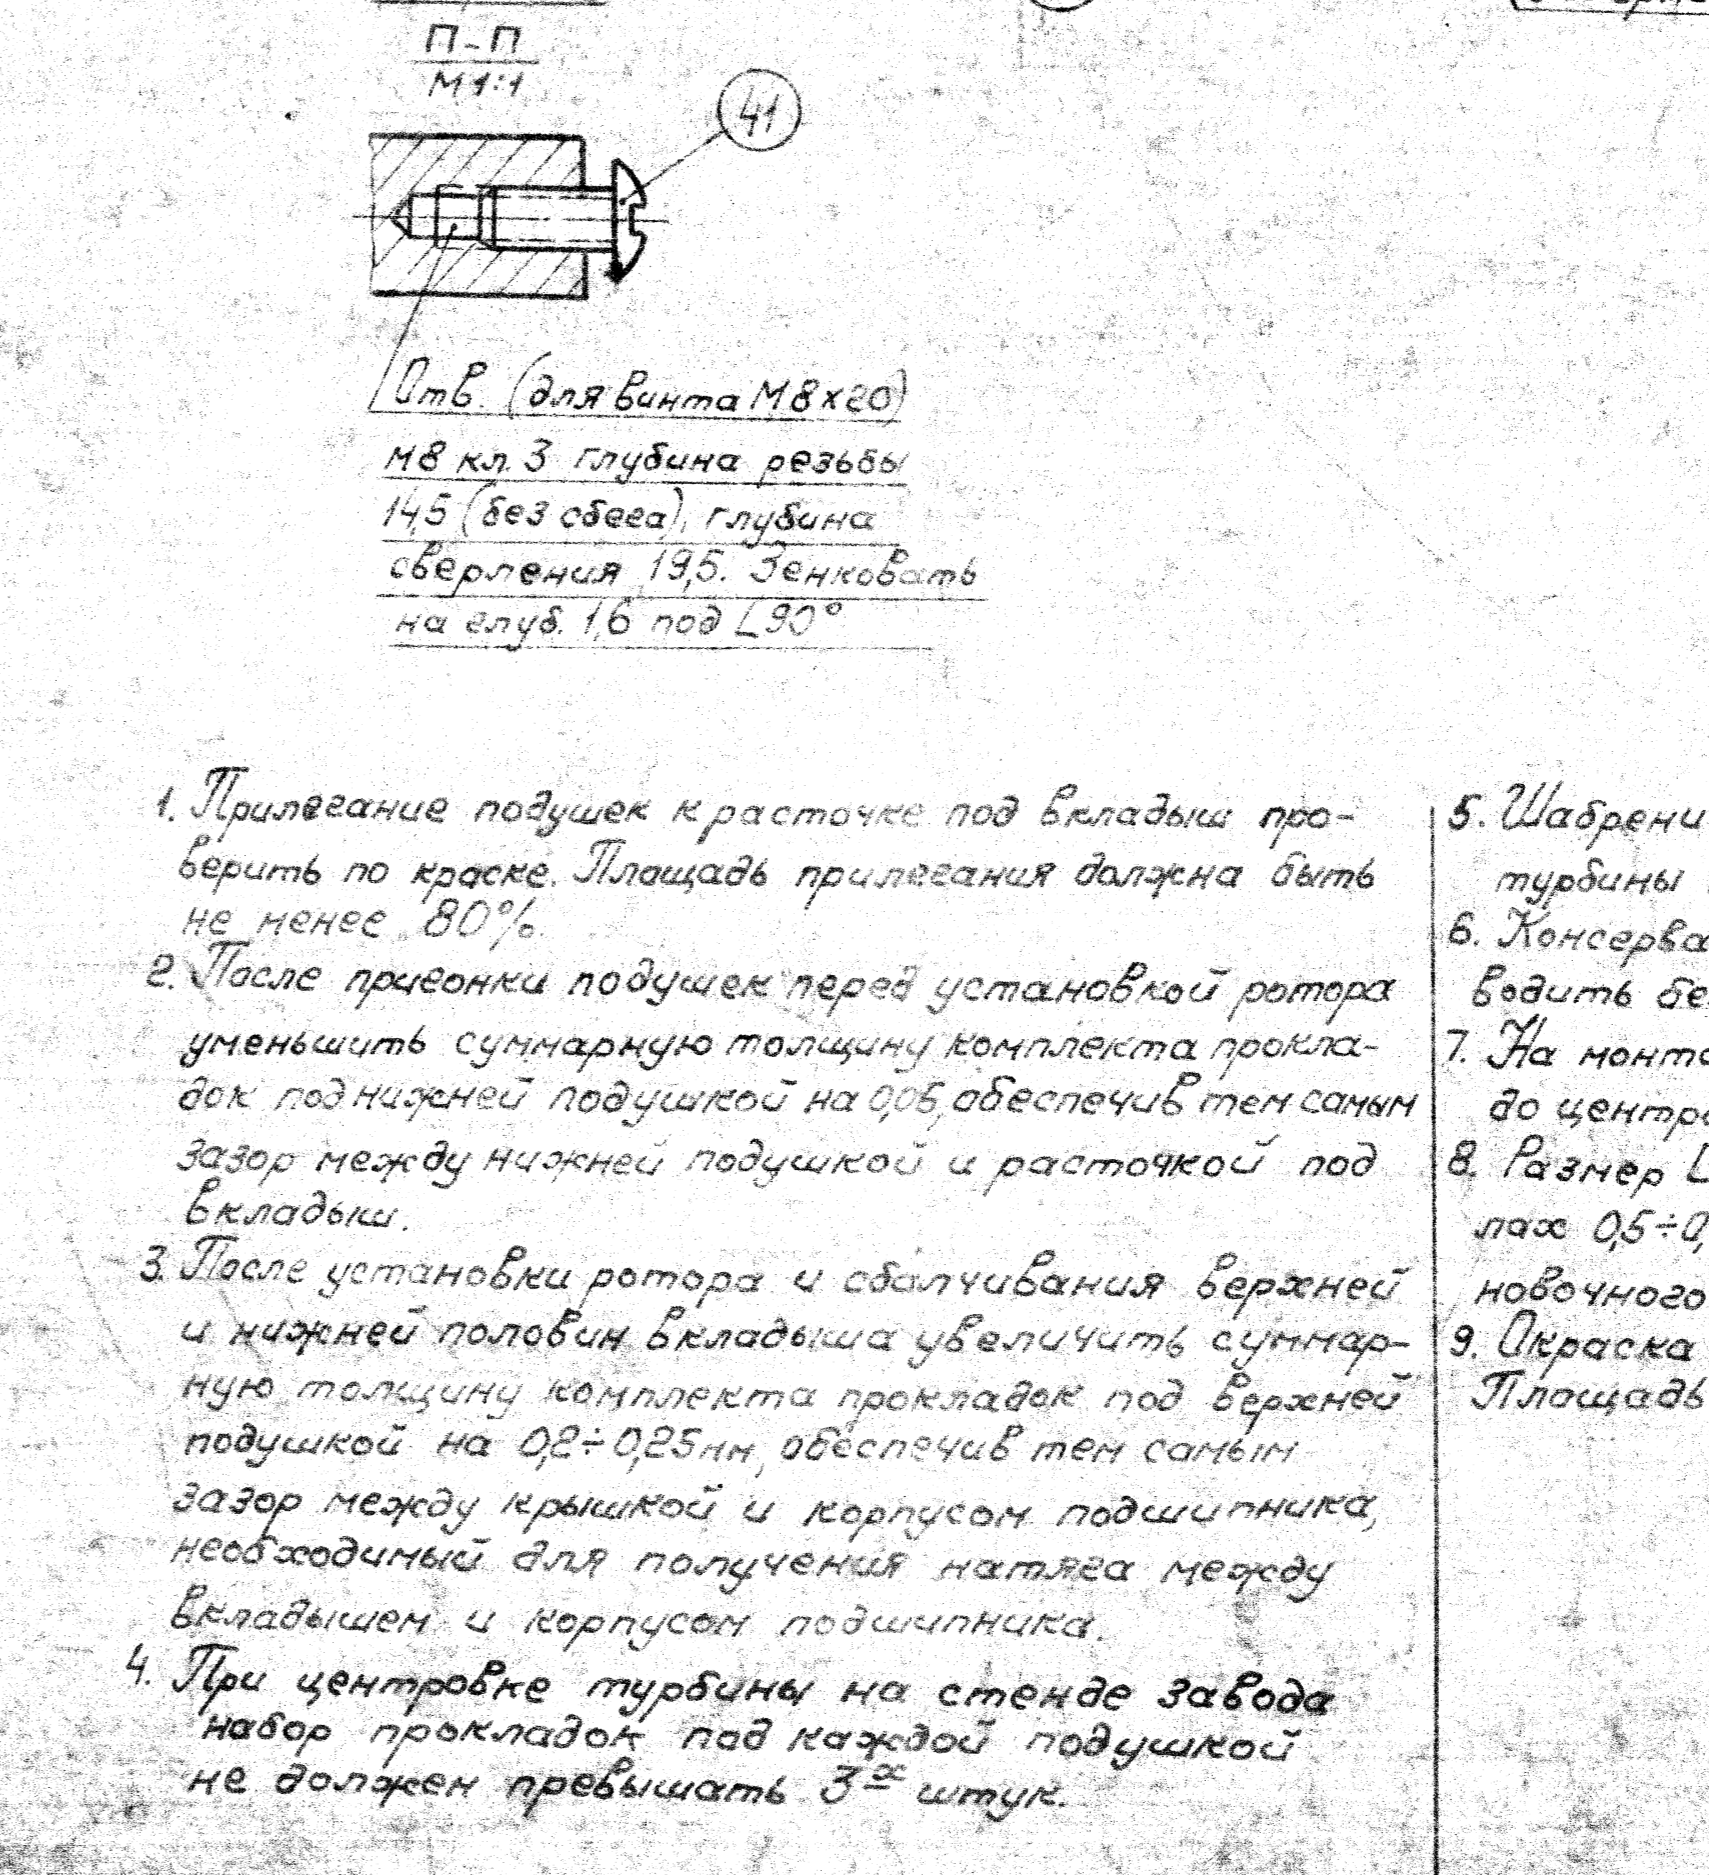 П-П
М1:1
41
Отв. (для винта М8х20)
М8 кл. 3 глубина резьбы
14,5 (без сбега), глубина
сверления 19,5. Зенковать
на глуб. 1,6 под ∠90°
1. Прилегание подушек к расточке под вкладыш про-
верить по краске. Площадь прилегания должна быть
не менее 80%.
2. После пригонки подушек перед установкой ротора
уменьшить суммарную толщину комплекта прокла-
док под нижней подушкой на обеспечив тем самым
зазор между нижней подушкой и расточкой под
вкладыш.
3. После установки ротора и сболчивания верхней
и нижней половин вкладыша увеличить суммар-
ную толщину комплекта прокладок под верхней
подушкой на 0,2÷0,25мм, обеспечив тем самым
зазор между крышкой и корпусом подшипника,
необходимый для получения натяга между
вкладышем и корпусом подшипника.
4. При центровке турбины на стенде завода
набор прокладок под каждой подушкой
не должен превышать 3х штук.
5. Шабрени
турбины
6. Консерва
водить бе
7. На монта
до центр
8. Размер L
лах 0,5÷0,
новочного
9. Окраска
Площадь